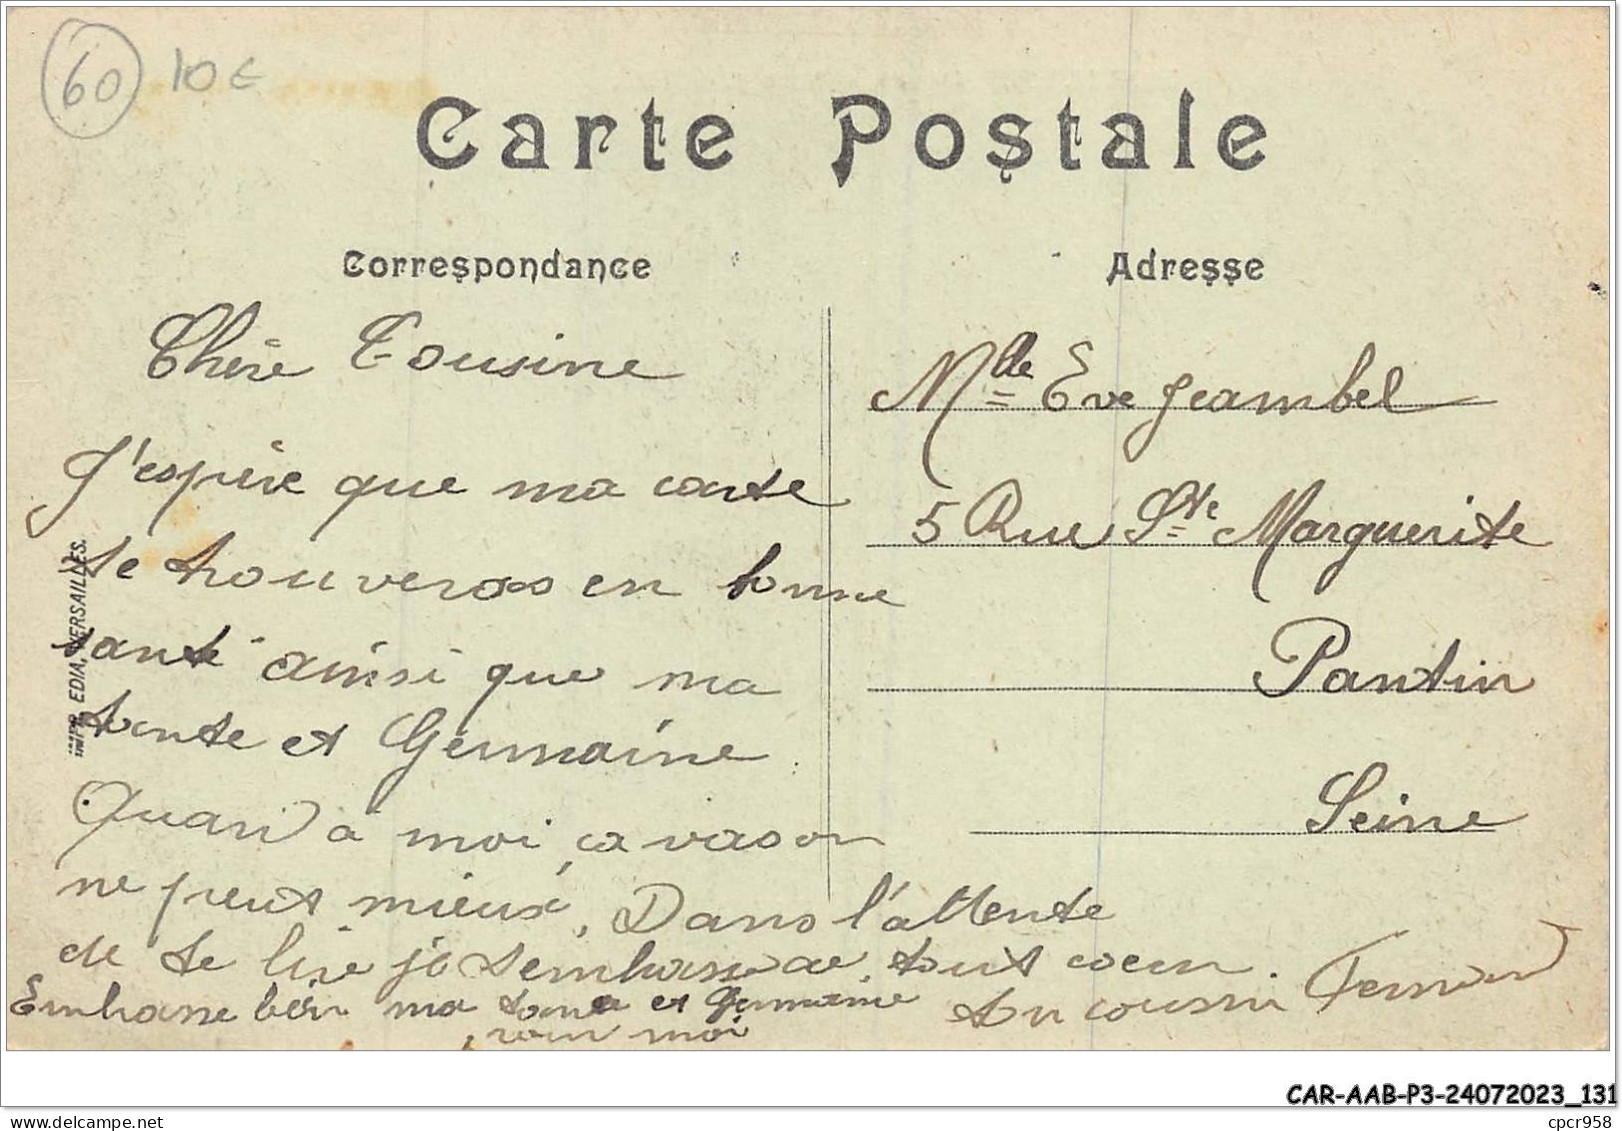 60 10€
Carte Postale
Correspondance
Adresse
Chère Cousine
J'espère que ma carte
te trouveras en bonne
santé ainsi que ma
tente et Germaine
Quand à moi ça vas on
ne peut mieux. Dans l'attente
de te lire je t'embrasse de tout coeur.
Ton cousin Fernand
Embrasse bien ma tante et Germaine
pour moi
Mlle Eve Jeambel
5 Rue Ste Marguerite
Pantin
Seine
IMPR. EDIA, VERSAILLES.
CAR-AAB-P3-24072023_131
cpcr958